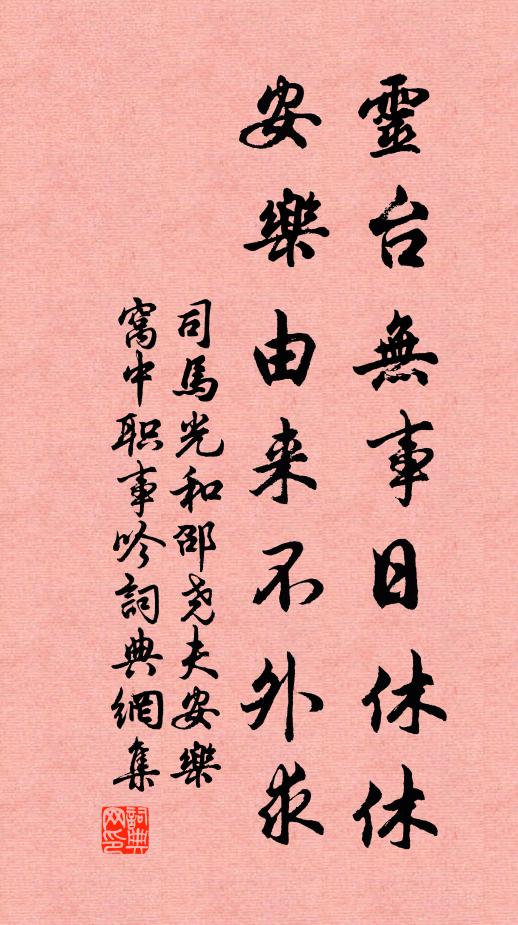 靈台無事日休休
安樂由来不外求
司馬光和邵尧夫安樂
窩中职事吟詞典網集
詞典
网印